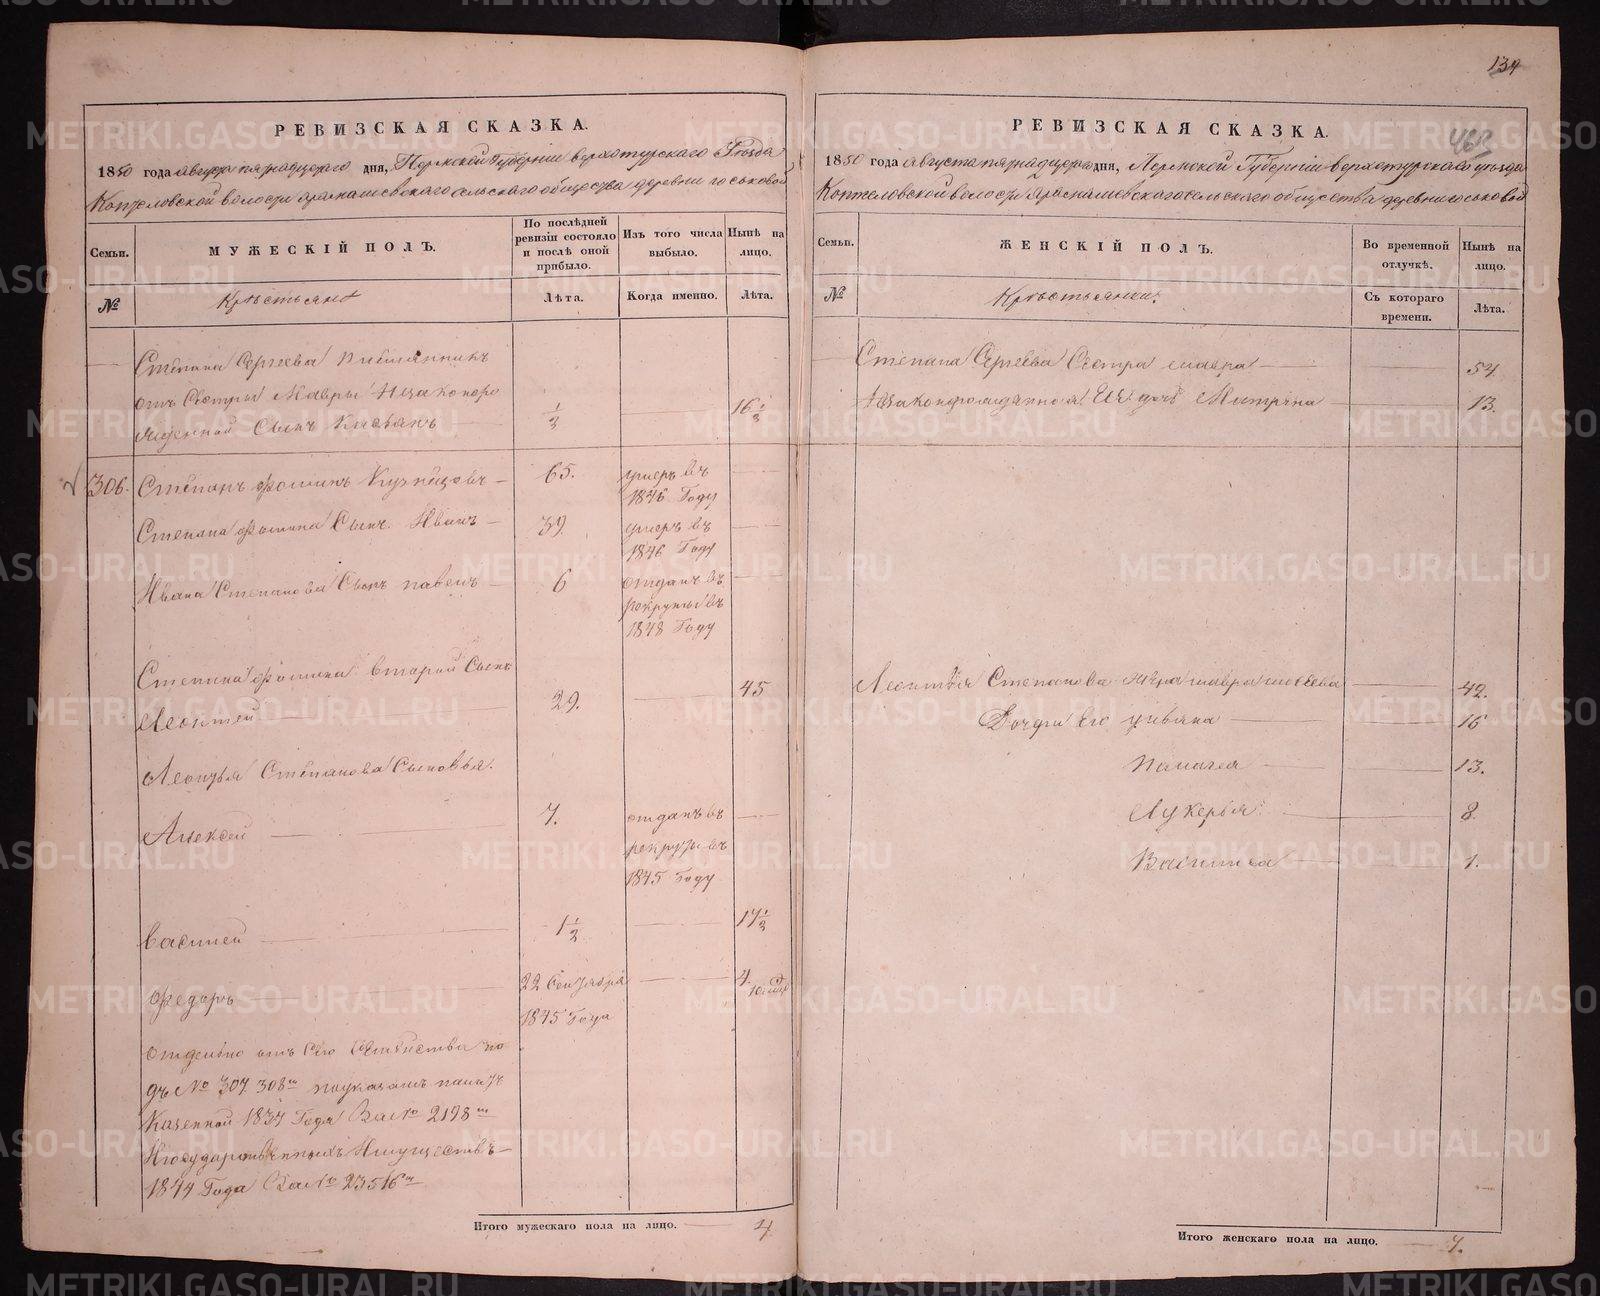 134
463
РЕВИЗСКАЯ СКАЗКА.
1850 года августа пятнадцатого дня, Пермской Губернии верхотурского Уезда
Коптеловской волости арамашевского сельского общества деревни госьковой
Семьи. МУЖЕСКІЙ ПОЛЪ. По послѣдней ревизіи состояло и послѣ оной прибыло. Изъ того числа выбыло. Нынѣ на лицо.
№ Крестьяне Лѣта. Когда именно. Лѣта.
Степана Сергеева племянникъ
отъ Сестры Мавры Незаконоро
жденной Сынъ Киевакъ ½ 16½
306. Степанъ фоминъ Кузнецовъ 65. умеръ въ 1846 Году
Степана фомина Сынъ Иванъ 39. умеръ въ 1846 Году
Ивана Степанова Сынъ павелъ 6 отданъ въ рекруты въ 1848 Году
Степана фомина второй Сынъ
Леонтей 29. 45
Леонтья Степанова Сыновья.
Алексей 7. отданъ въ рекруты въ 1845 Году
Василей 1½ 17½
Федоръ 22 Сентября 1845 Года 4. 10 мес
отделено отъ сего семейства по
дъ № 307 308м поуказамъ палатъ
Казенной 1834 Года За № 2198м
Игосударственныхъ Имуществъ
1844 Года За № 23516м
Итого мужескаго пола на лицо. 4
РЕВИЗСКАЯ СКАЗКА.
1850 года августа пятнадцатого дня, Пермской Губернии верхотурского уезда
Коптеловской волости Арамашевского сельского общества деревни госьковой
Семьи. ЖЕНСКІЙ ПОЛЪ. Во временной отлучкѣ. Нынѣ на лицо.
№ Крестьянки. Съ котораго времени. Лѣта.
Степана Сергеева Сестра мавра 54.
Незаконорожденная Её дочь Матрёна 13.
Леонтья Степанова жена мавра 42.
Дочери его ульяна 16
Палагея 13.
Лукерья 8.
Василиса 1.
Итого женскаго пола на лицо. 7.
METRIKI.GASO-URAL.RU